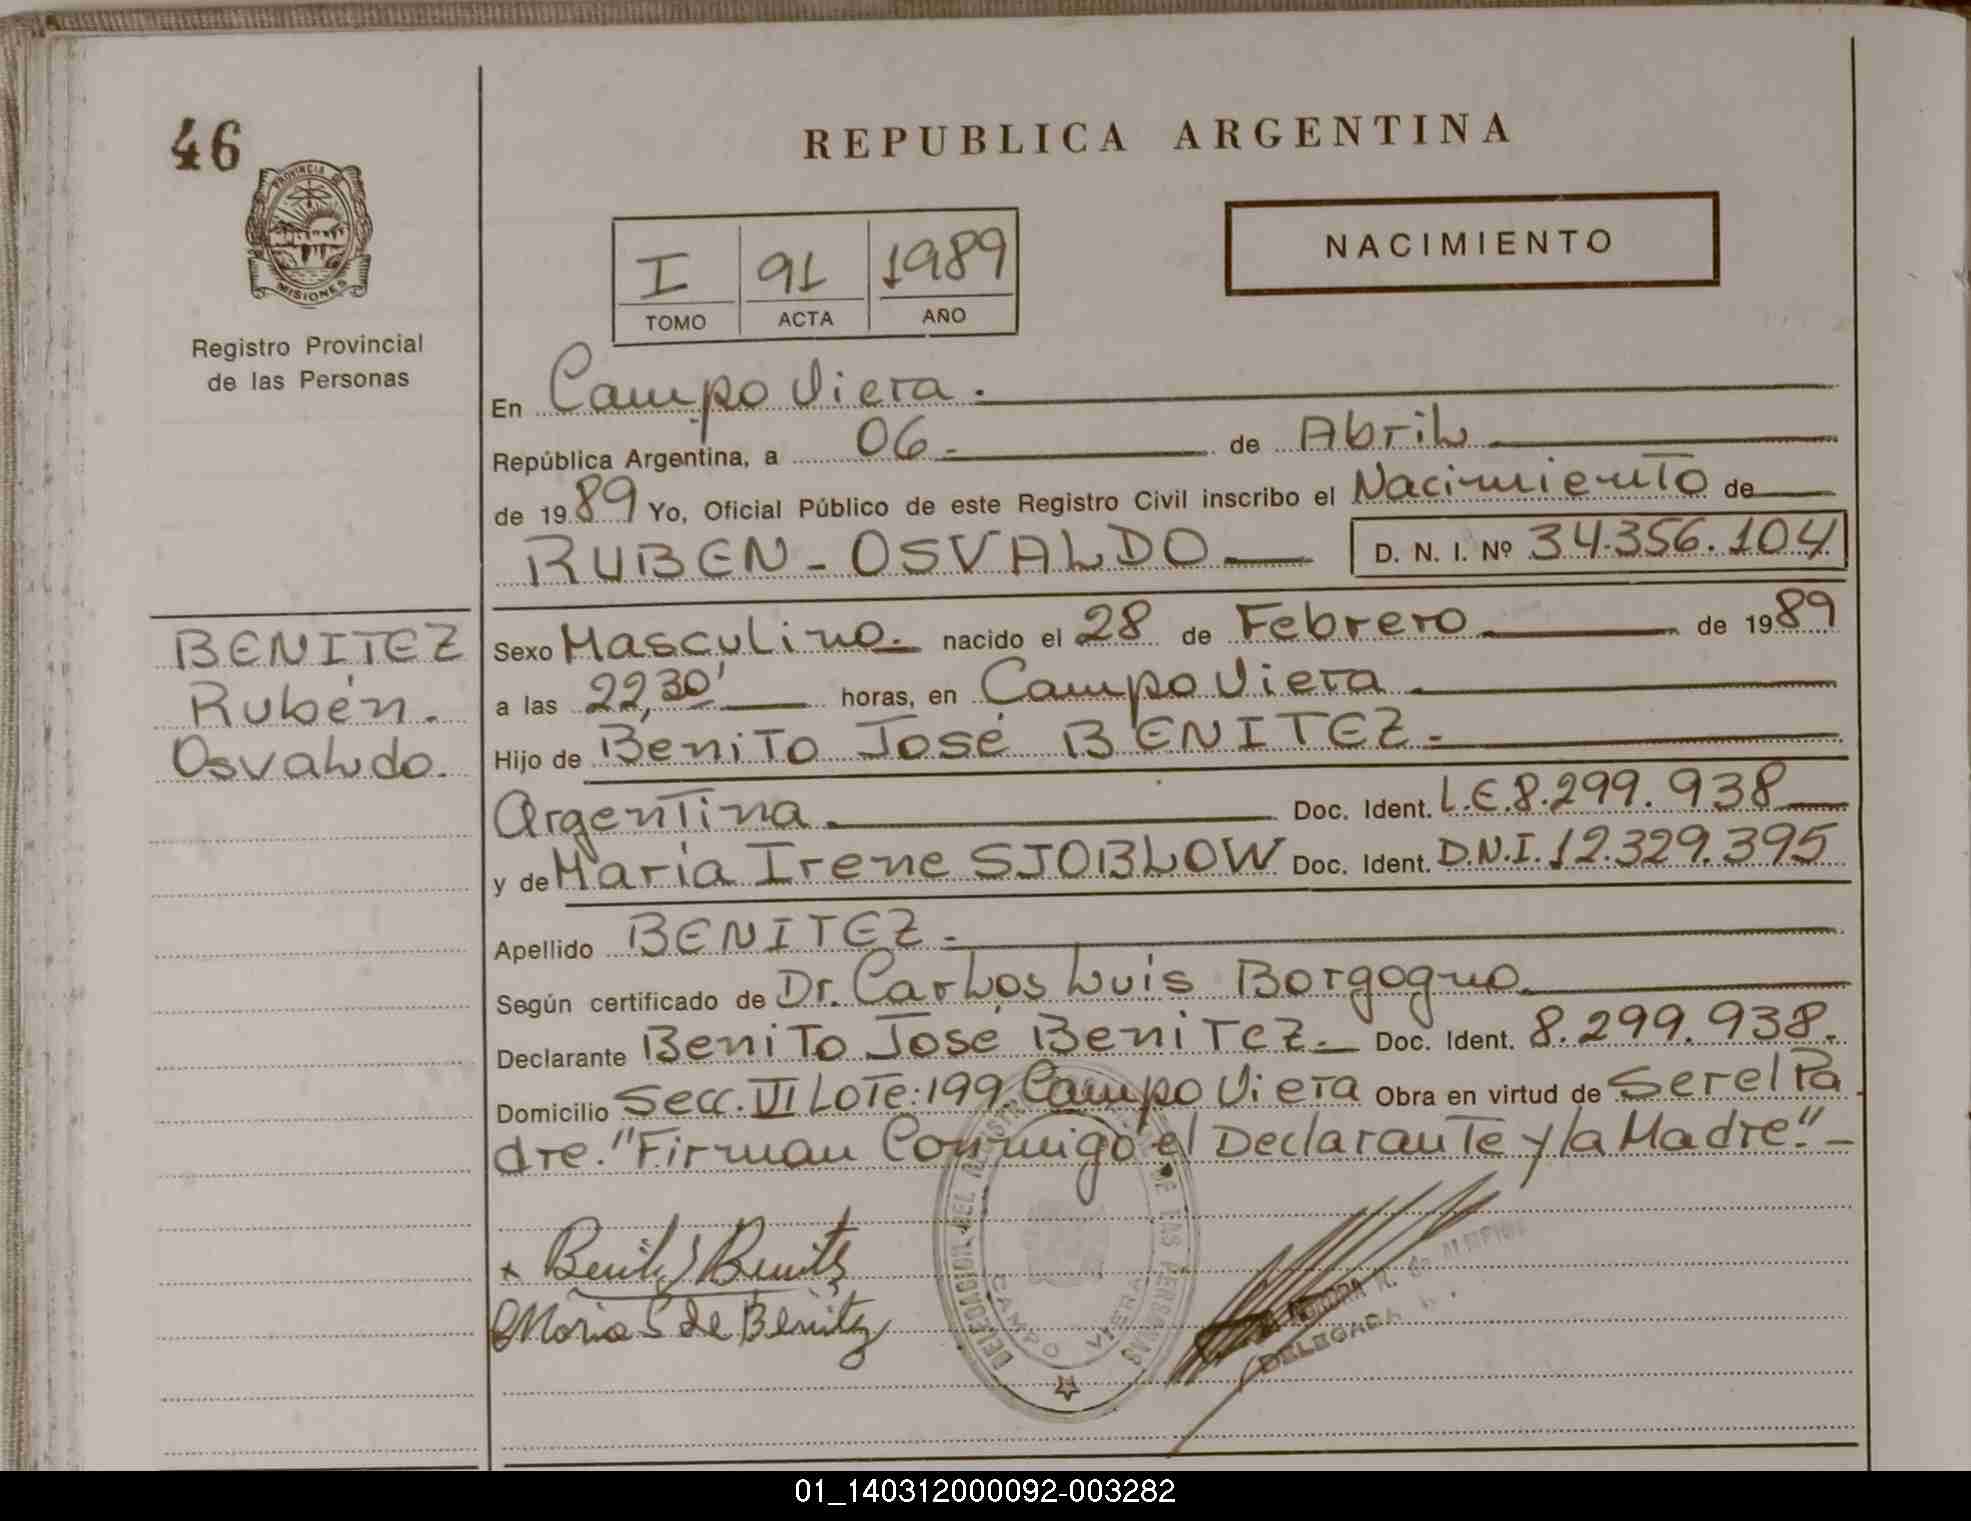 46
PROVINCIA DE
MISIONES
Registro Provincial
de las Personas
REPUBLICA ARGENTINA
NACIMIENTO
I 91 1989
TOMO ACTA AÑO
En Campo Viera.
República Argentina, a 06 de Abril
de 1989 Yo, Oficial Público de este Registro Civil inscribo el Nacimiento de
RUBEN - OSVALDO D. N. I. Nº 34.356.104
BENITEZ
Rubén.
Osvaldo.
Sexo Masculino. nacido el 28 de Febrero de 1989
a las 22,30' horas, en Campo Viera
Hijo de Benito José BENITEZ.
Argentina. Doc. Ident. L.E.8.299.938
y de María Irene SJOBLOW Doc. Ident. D.N.I. 12.329.395
Apellido BENITEZ.
Según certificado de Dr. Carlos Luis Borgogno.
Declarante Benito José Benitez. Doc. Ident. 8.299.938.
Domicilio Secc. VI Lote: 199 Campo Viera Obra en virtud de Ser el Pa
dre. "Firman Conmigo el Declarante y la Madre." -
Benito J Benitez
Maria S de Benitez
DELEGACION DEL REGISTRO DE LAS PERSONAS
CAMPO VIERA
DELEGADA
01_140312000092-003282